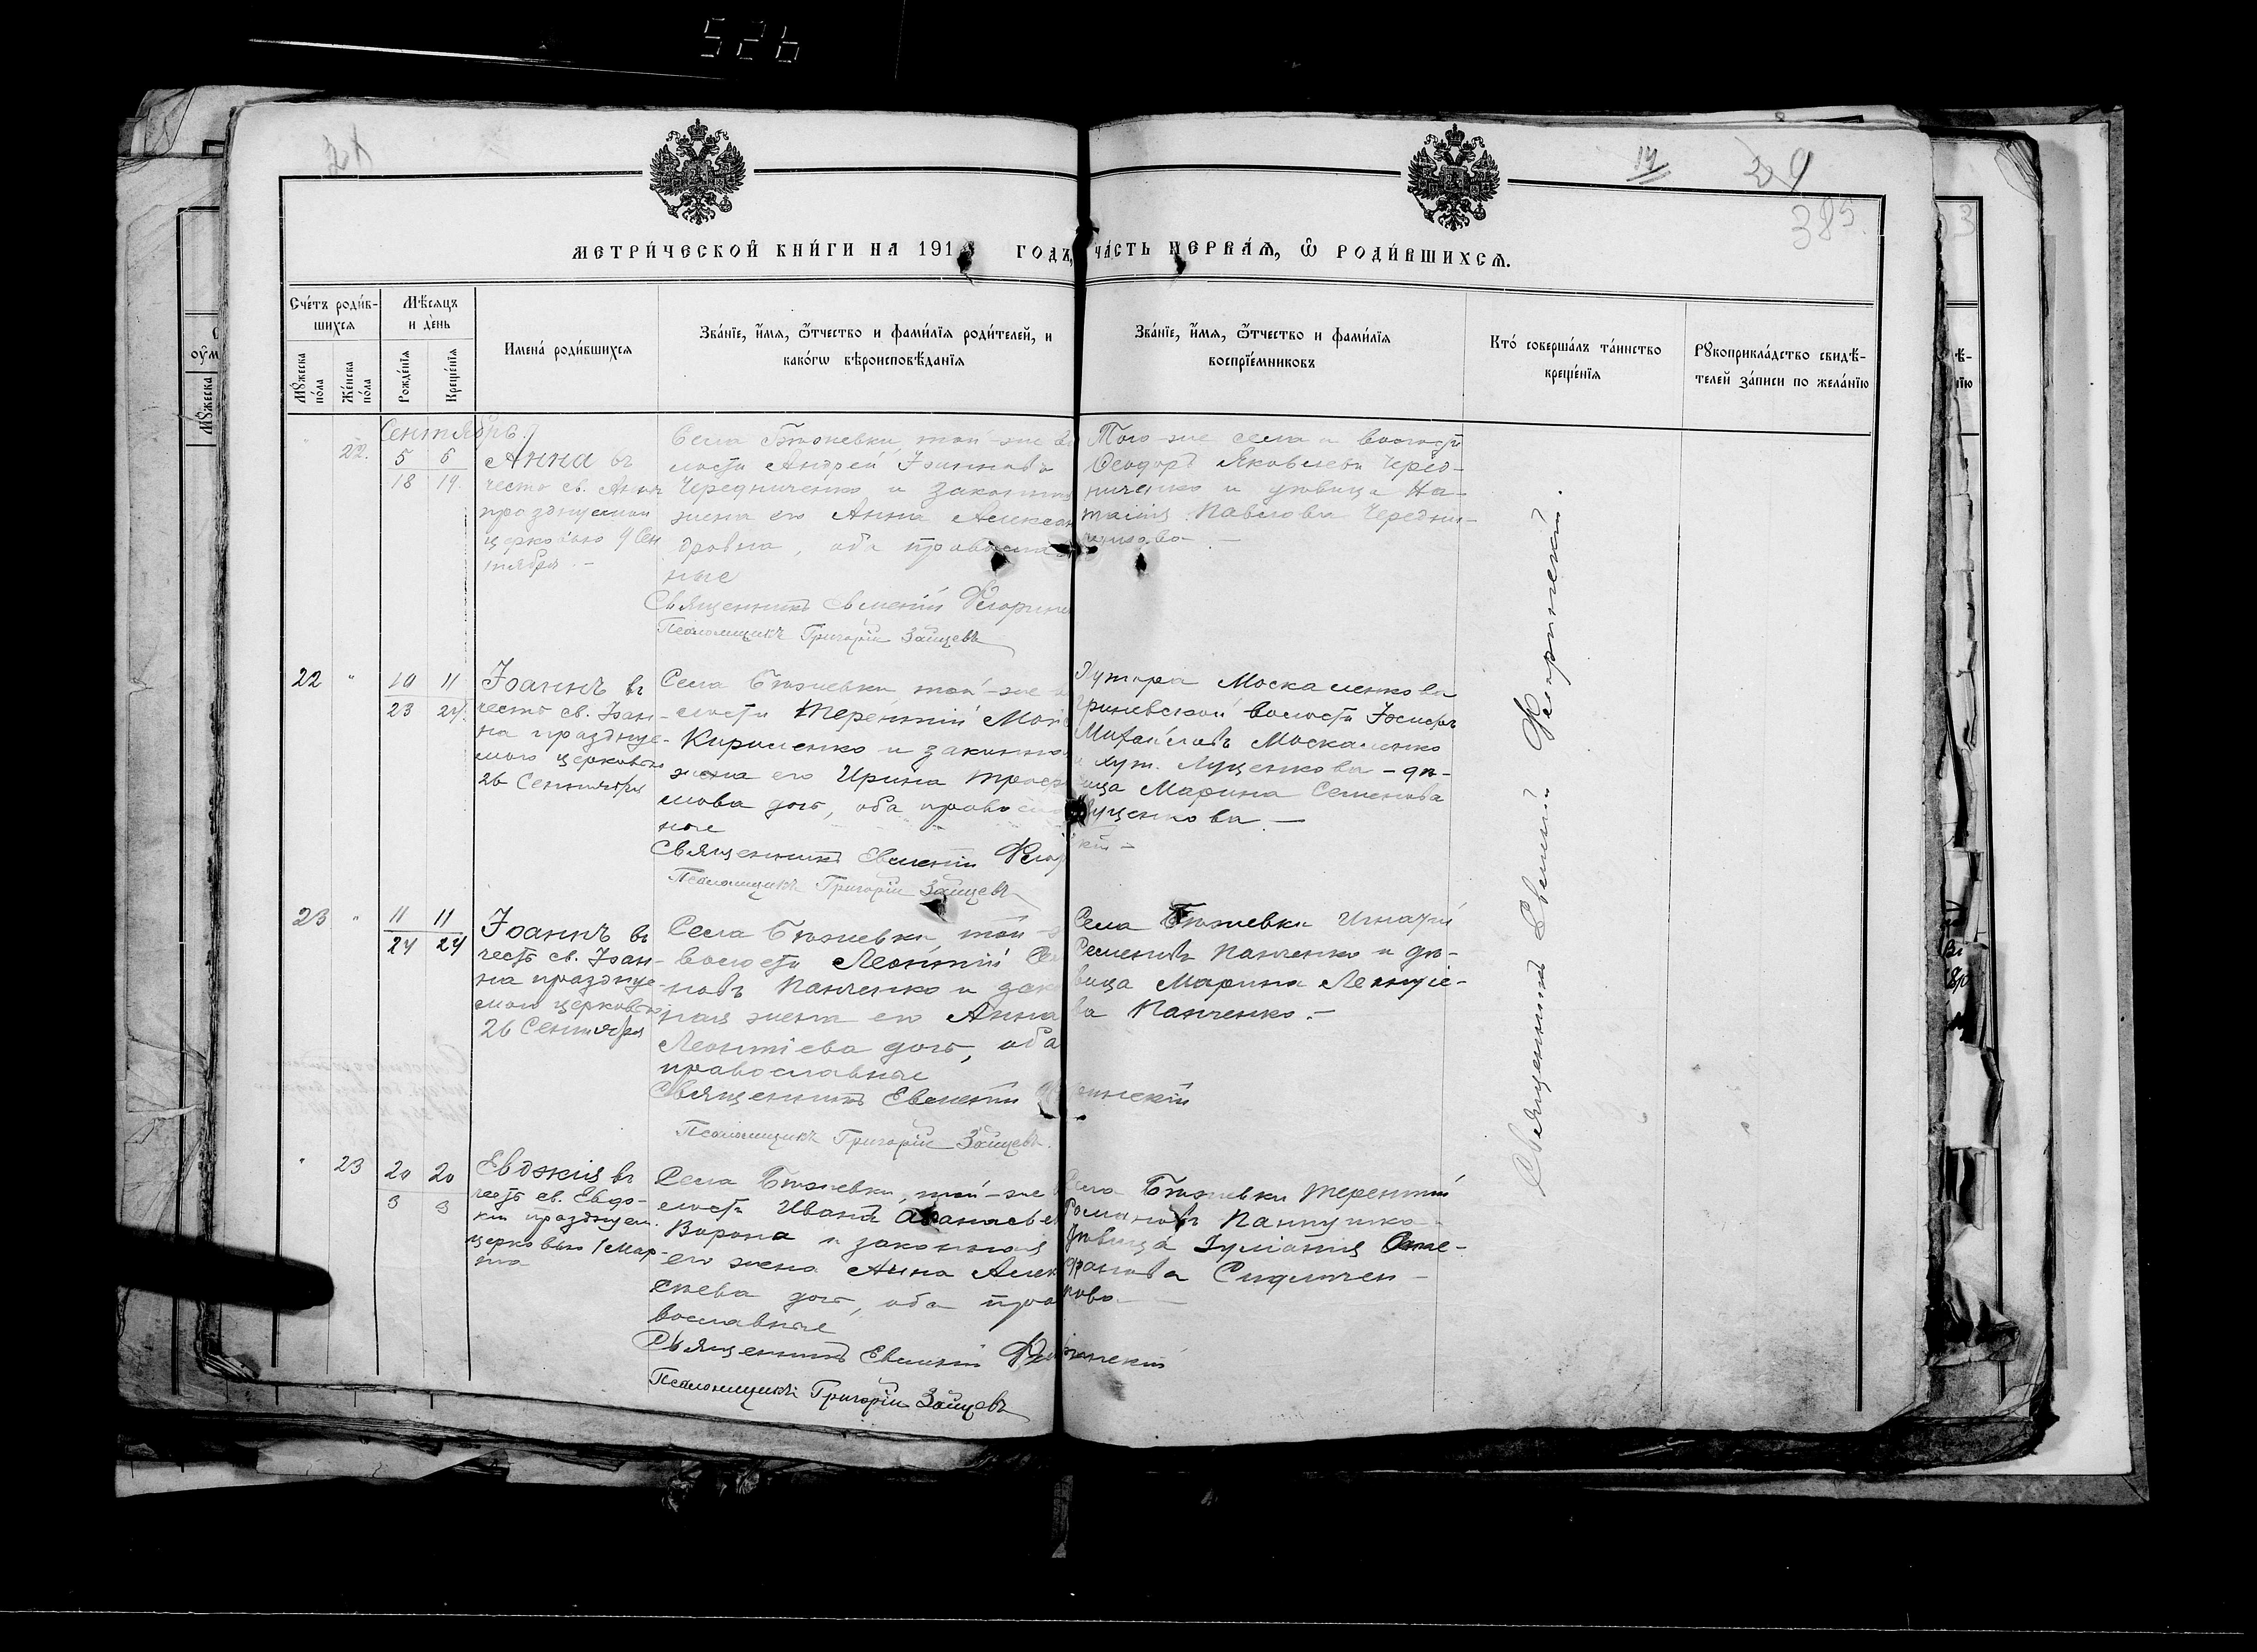 526
24
14
29
385.
МЕТРИ́ЧЕСКОЙ КНИ́ГИ НА 191 ГОДЪ, ЧА́СТЬ ПЕРВА́Я, Ѿ РОДИ́ВШИХСЯ.
Сче́тъ роди́в-
шихся
Мѣ́сяцъ
и де́нь
Мꙋ́жеска по́ла
Же́нска по́ла
Рожде́нїя
Креще́нїя
Имена́ роди́вшихся
Зва́нїе, и́мя, ѻ҆́тчество и фами́лїя роди́телей, и
како́гѡ вѣроисповѣ́данїя
Зва́нїе, и́мя, ѻ҆́тчество и фами́лїя
воспрїе́мниковъ
Кто́ соверша́лъ та́инство
креще́нїя
Рꙋкоприкла́дство свидѣ́-
телей за́писи по жела́нїю
Сентябрь.
22.
5 6
18 19.
Анна въ
честь св. Анны
празднуемой
церковью 9 Сен
тября. –
Села Бѣжевки, той-же во
лости Андрей Іоанновъ
Чередниченко и законная
жена его Анна Алексан
дровна, оба православ
ные
Священникъ Евменій Флорин
Псаломщикъ Григорій Зайцевъ
Того-же села и волости
Ѳеодоръ Яковлевъ Черед-
ниченко и дѣвица На-
талія Павлова Чередни-
ченкова –
22 "
10 11
23 24.
Іоаннъ въ
честь св. Іоан-
на праздну-
емого церковью
26 Сентября
Села Бѣжевки той-же в
лости Терентій Мои
Кириленко и законная
жена его Ирина Троф
мова дочь, оба правосла
ные
Священникъ Евменій Флор
Псаломщикъ Григорій Зайцевъ
Хутора Москаленкова
Гриневской волости Іосифъ
Михайловъ Москаленко
и хут. Луценкова – дѣ-
вица Марина Семенова
Луценкова. –
кій –
23 "
11 11
24 24
Іоаннъ въ
честь св. Іоан-
на праздну-
емого церковью
26 Сентября
Села Бѣжевки, той-
волости Леонтій Се
новъ Панченко и зако
ная жена его Анна
Леонтіева дочь, оба
православные
Священникъ Евменій Ф
Псаломщикъ Григорій Зайцевъ.
Села Бѣжевки Игнатій
Семеновъ Панченко и дѣ-
вица Марина Леонтіе-
ва Панченко. –
ринскій
" 23
20 20
3 3
Евдокія въ
честь св. Евдо-
кіи празднуем.
церковью 1 Мар-
та
Села Бѣжевки, той-же
лости Иванъ Афанасьев
Ворона и законная
его жена Анна Алек
сѣева дочь, оба пра
вославные
Священникъ Евменій Фло
Псаломщикъ Григорій Зайцевъ
Села Бѣжевки Терентій
Романовъ Пантушко
дѣвица Іуліанія Сте-
фанова Сидличен-
кова –
ринскій
Священникъ Евменій Флоринскій.